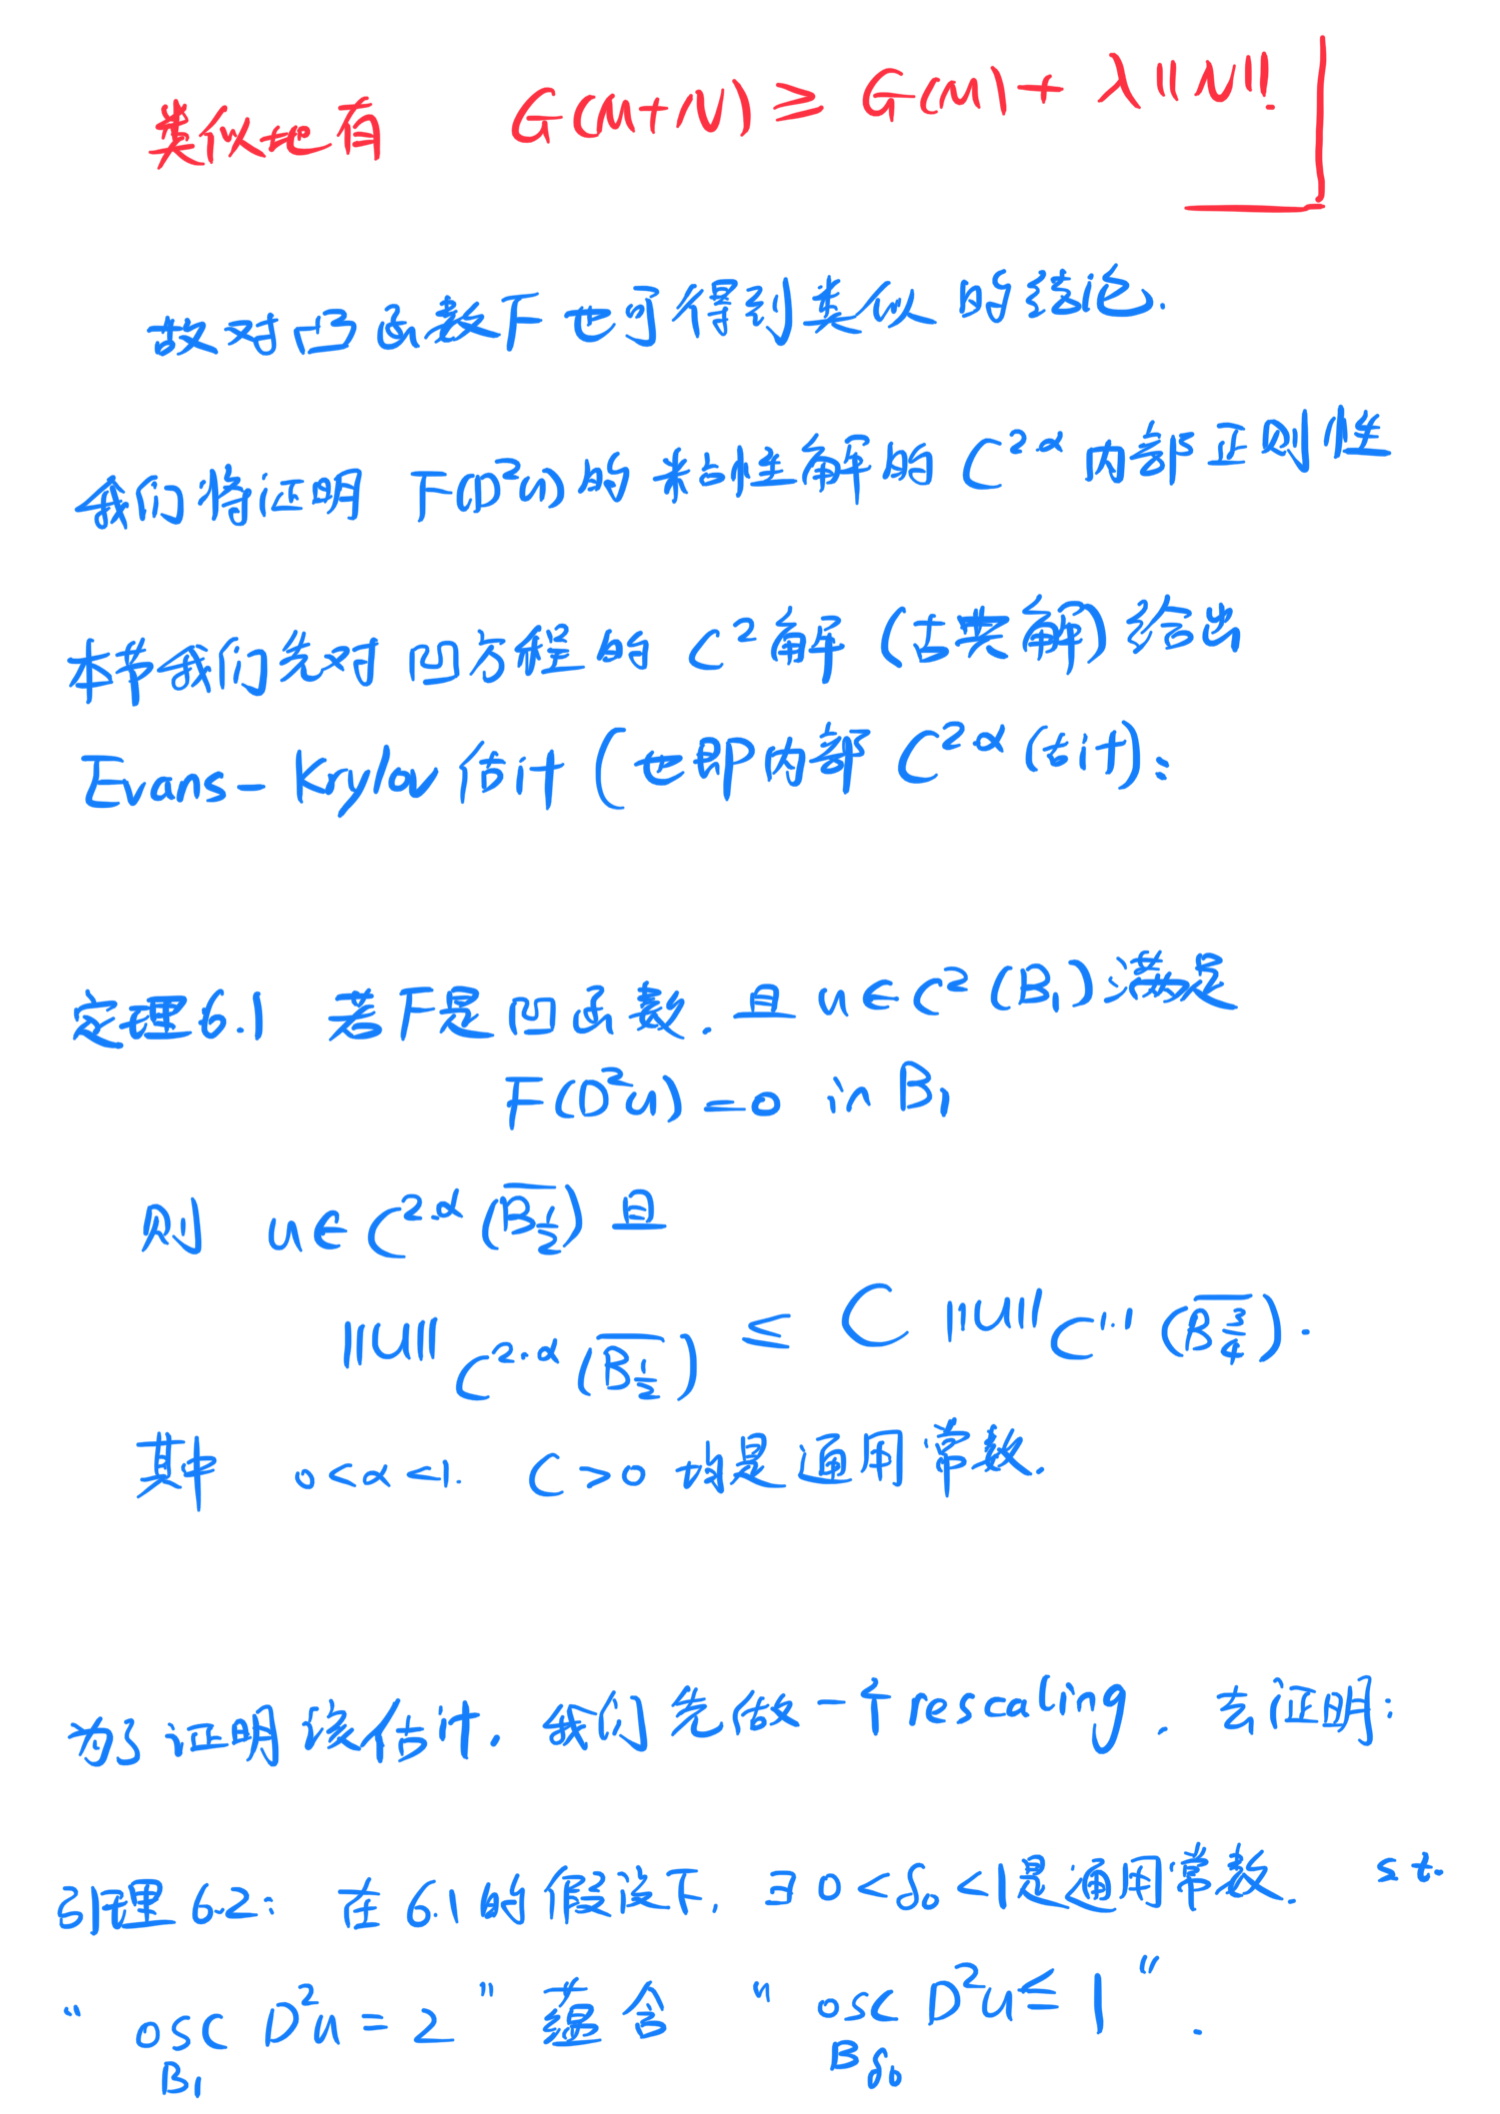 类似地有 G(M+N) ≥ G(M) + λ||N||!
故对凸函数F也可得到类似的结论.
我们将证明 F(D²u)的粘性解的 C^{2.α} 内部正则性
本节我们先对凹方程的 C²解 (古典解) 给出
Evans-Krylov估计 (也即内部 C^{2.α}估计):
定理6.1 若F是凹函数. 且 u∈C²(B₁)满足
F(D²u)=0 in B₁
则 u∈C^{2.α}(\overline{B_{\frac{1}{2}}}) 且
||u||_{C^{2.α}(\overline{B_{\frac{1}{2}}})} ≤ C ||u||_{C^{1.1}(\overline{B_{\frac{3}{4}}})}.
其中 0<α<1. C>0 均是通用常数.
为了证明该估计. 我们先做一个rescaling. 去证明:
引理6.2: 在6.1的假设下. ∃ 0<δ₀<1是通用常数. s.t.
“ osc_{B₁} D²u = 2 ” 蕴含 “ osc_{B_{δ₀}} D²u ≤ 1 ”.